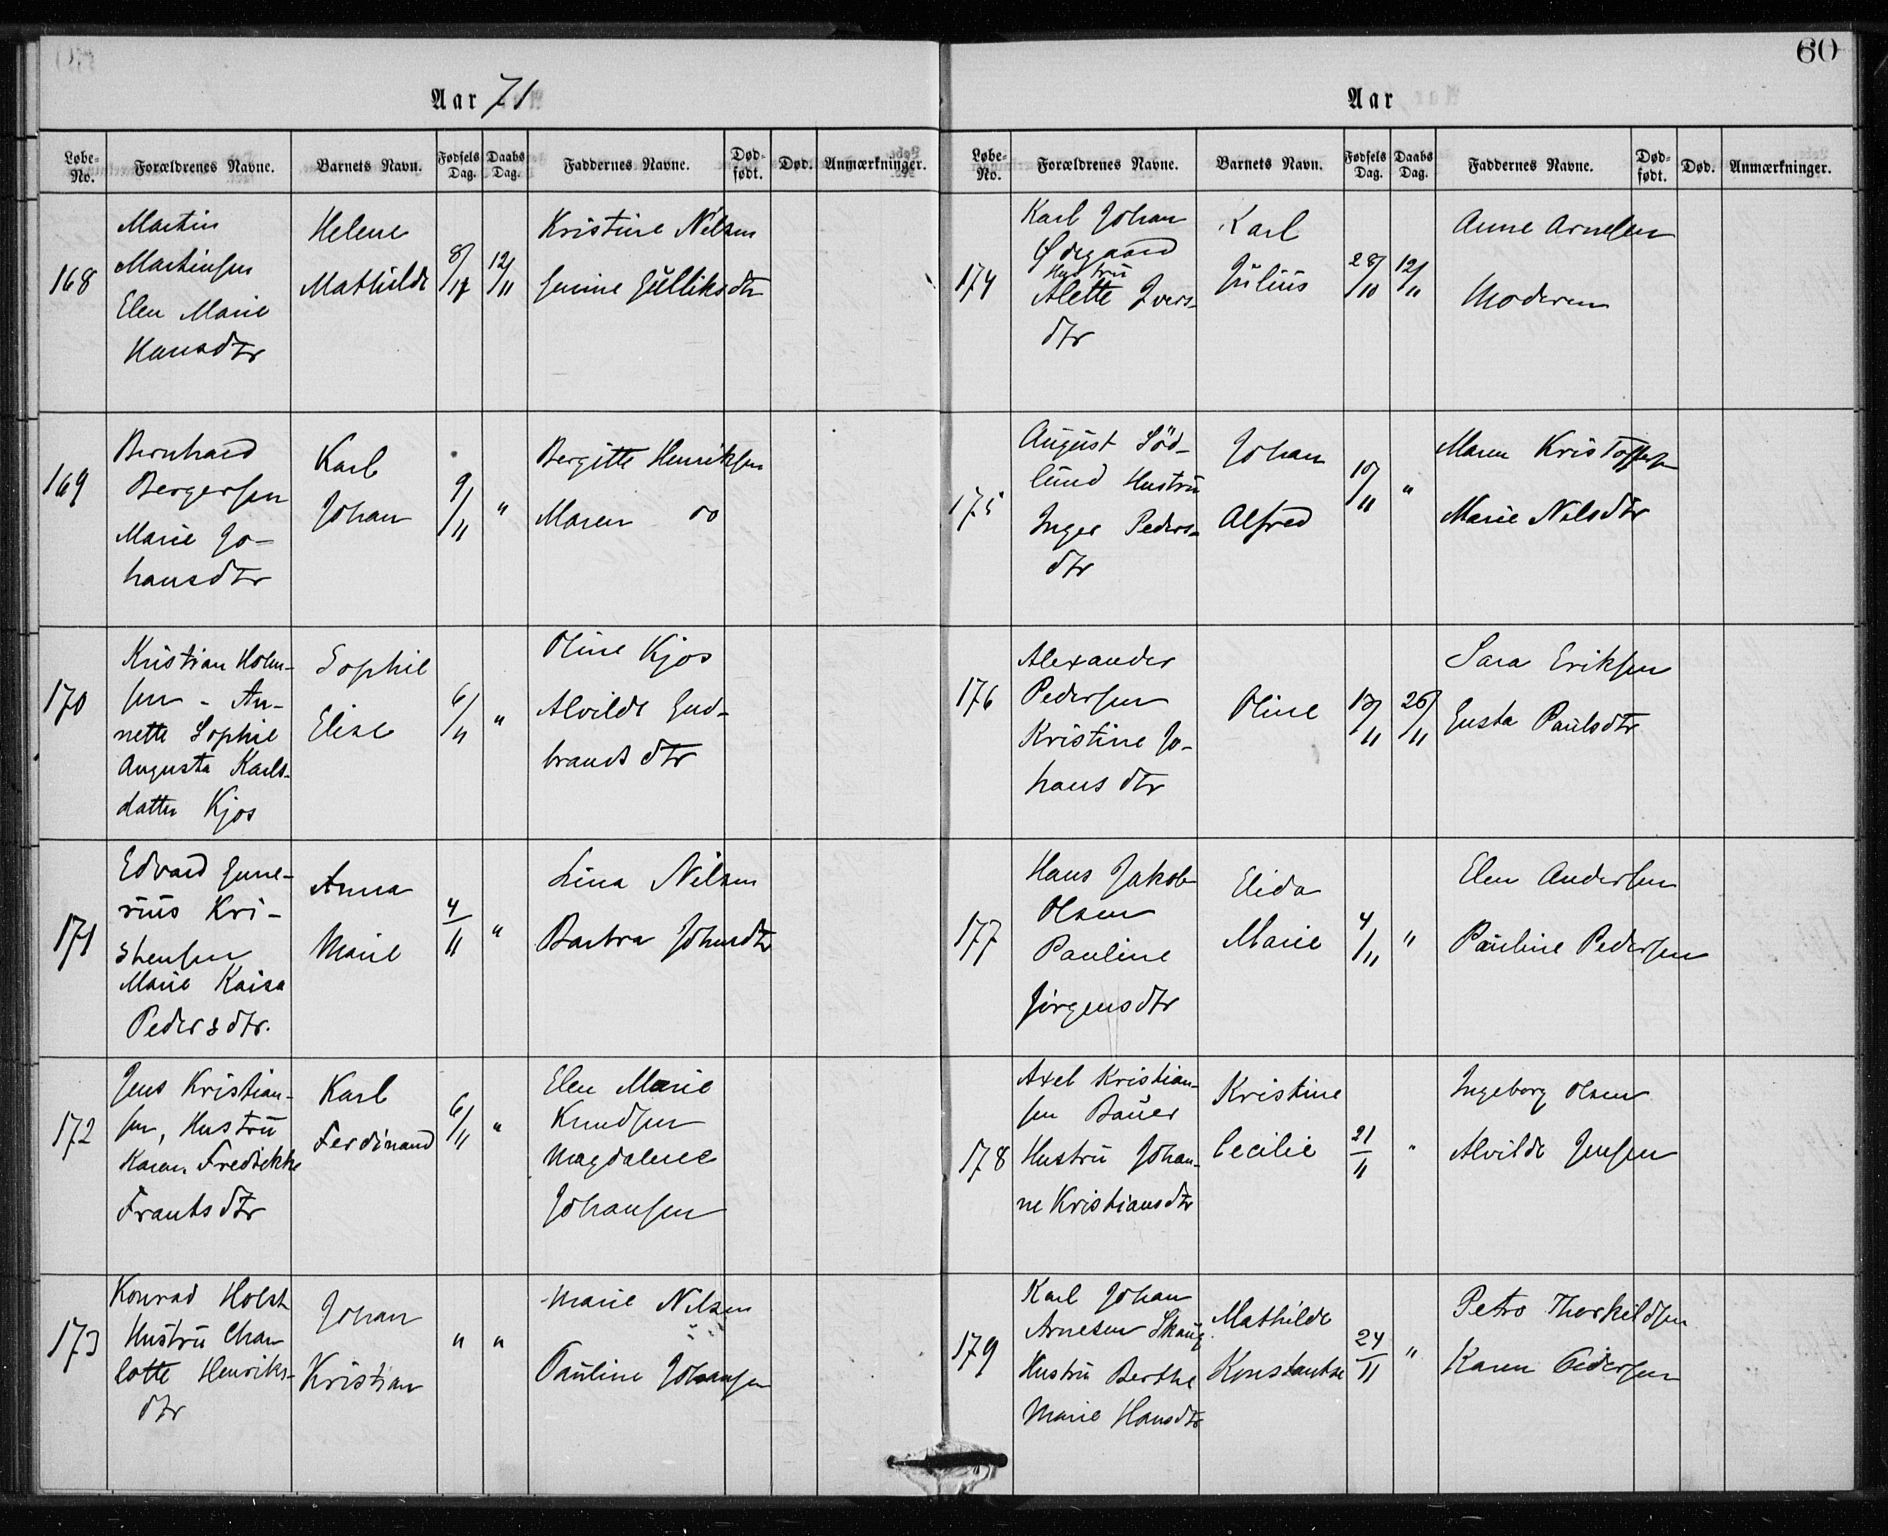 60
Aar 71
Løbe-No. Forældrenes Navne. Barnets Navn. Fødsels Dag. Daabs Dag. Faddernes Navne. Død-født. Død. Anmærkninger.
168
Martin
Martinsen
Elen Marie
Hansdtr
Helene
Mathilde
8/
12/11
Kristine Nilsen
Gulliksdtr
169
Bernhard
Bergersen
Marie Jo-
hansdtr
Karl
Johan
9/11
"
Bergitte Henriksen
Maren do
170
Kristian Holm-
sen - An-
nette Sophie
Augusta Karls-
datter Kjos
Sophie
Elise
6/11
"
Oline Kjos
Alvilde Gud-
brandsdtr
171
Edvard Gune-
rius Kri-
stensen
Marie Kaisa
Pedersdtr.
Anna
Marie
4/11
"
Lina Nilsen
Barbra Johnsdtr
172
Jens Kristian-
sen, Hustru
Karen Fredrikke
Frantsdtr
Karl
Ferdinand
6/11
"
Elen Marie
Knudsen
Magdalene
Johansen
173
Konrad Holst
Hustru Char
lotte Henriks-
dtr
Johan
Kristian
"
"
Marie Nilsen
Pauline Johansen
Aar
Løbe-No. Forældrenes Navne. Barnets Navn. Fødsels Dag. Daabs Dag. Faddernes Navne. Død-født. Død. Anmærkninger.
174
Karl Johan
Ødegaard
Hustru
Alette Ivers-
dtr
Karl
Julius
28/10
12/11
Anne Arnesen
Moderen
175
August Söd-
lund Hustru
Inger Peders-
dtr
Johan
Alfred
10/11
"
Maren Kristoffersen
Marie Nilsdtr
176
Alexander
Pedersen
Kristine Jo-
hansdtr
Oline
13/11
26/11
Sara Eriksen
Gusta Paulsdtr
177
Hans Jakob
Olsen
Pauline
Jörgensdtr
Elida
Marie
4/11
"
Elen Andersen
Pauline Pedersen
178
Axel Kristian-
sen Bauer
Hustru Johan-
ne Kristiansdtr
Kristine
Cecilie
21/11
"
Ingeborg Olsen
Alvilde Jensen
179
Karl Johan
Arnesen Skaug
Hustru Berthe
Marie Hansdtr
Mathilde
Konstantse
24/11
"
Petro Thorkildsen
Karen Pedersen